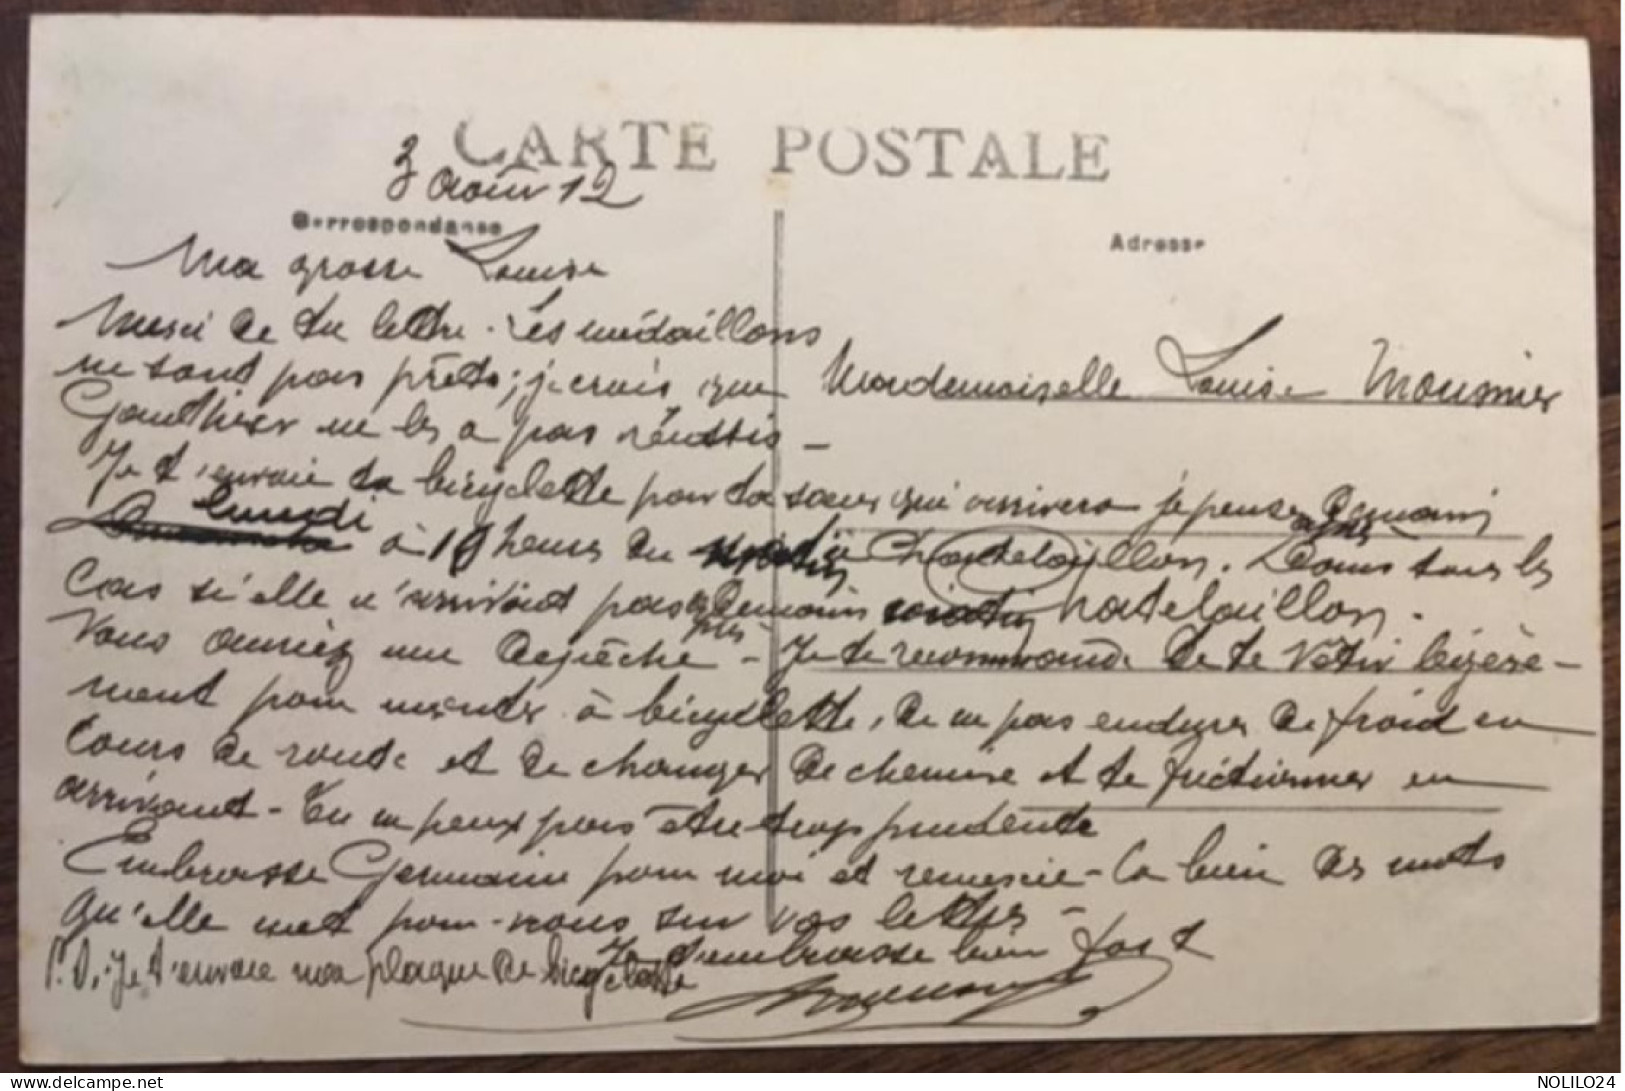 CARTE POSTALE
3 Août 12
Correspondance
Adresse
Ma grosse Louise
Merci de ta lettre. Les médaillons
ne sont pas prêts; je crois que
Mademoiselle Louise Mousnier
Gauthier ne les a pas réussis -
Je t'envoie ta bicyclette pour ta sœur qui arrivera je pense demain
lundi à 10 heures du à Chatelaillon. Dans tous les
cas si elle n'arrivait pas demain Chatelaillon.
vous auriez une dépêche - Je te recommande de te vêtir légère-
ment pour monter à bicyclette, de ne pas endurer de froid en
cours de route et de changer de chemise et te frictionner en
arrivant - Tu ne peux pas être trop prudente
Embrasse Germaine pour moi et remercie-la bien des mots
qu'elle met pour nous sur vos lettres -
Je t'embrasse bien fort
P.S. Je t'envoie ma plaque de bicyclette
delcampe.net
NOLILO24